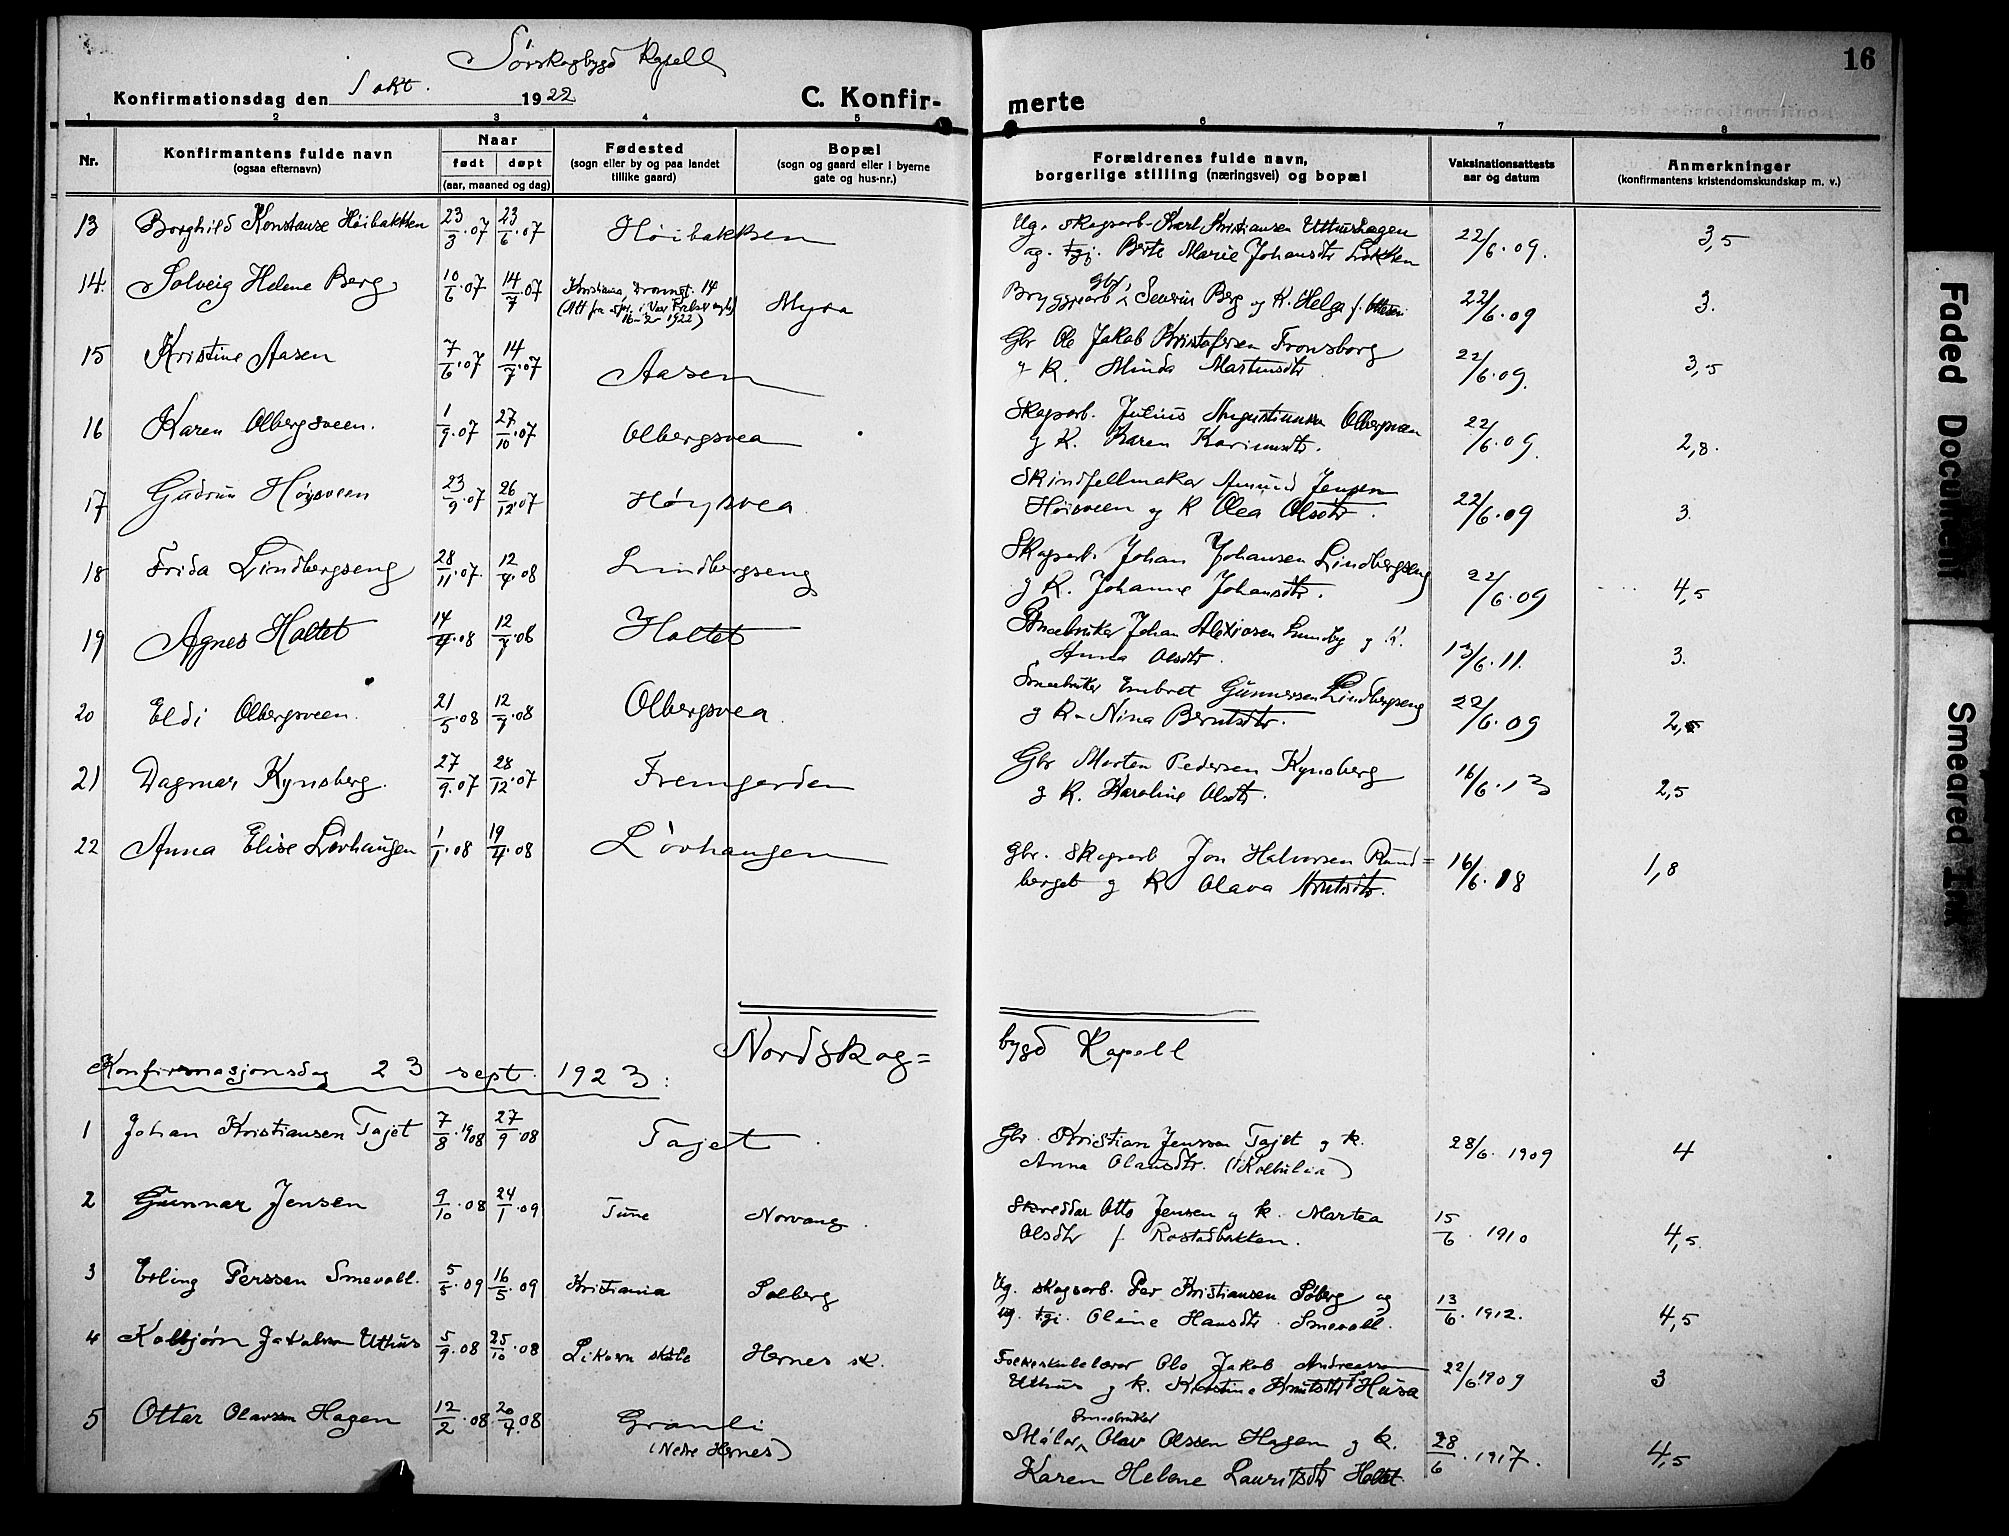 Sørskogbygd Kapell
16
Konfirmationsdag den 1 okt. 1922
C. Konfir-
merte
1 2 3 4 5 6 7 8
Nr.
Konfirmantens fulde navn
(ogsaa efternavn)
Naar
født døpt
(aar, maaned og dag)
Fødested
(sogn eller by og paa landet
tillike gaard)
Bopæl
(sogn og gaard eller i byerne
gate og hus-nr.)
Forældrenes fulde navn,
borgerlige stilling (næringsvei) og bopæl
Vaksinationsattests
aar og datum
Anmerkninger
(konfirmantens kristendomskundskap m. v.)
13 Borghild Konstanse Høibakken 23/3.07 23/6.07 Høibakken Ug. skogsarb. Karl Kristiansen Uthushagen 22/6.09. 3,5
og tgj. Berte Marie Johansdtr Løkken
14. Solveig Helene Berg 10/6.07 14/7.07 Kristiania, 14 Myra Bryggearb. Severin Berg og K. Helga f. Ottesen 22/6.09 3.
(Att fra spr. i Vor Frelser
16-2-1922)
15 Kristine Aasen 7/6.07 14/7.07 Aasen Gbr Ole Jakob Kristofersen Tronsborg 22/6.09. 3,5
og K. Minda Martinsdtr
16 Karen Olbergsveen. 1/9.07 27/10.07 Olbergsvea Skogsarb. Julius Augustinussen Olbergsveen 22/6.09. 2,8.
g K. Karen Karinusdtr.
17 Gudrun Høgsveen 23/9.07 26/12.07 Høgsvea. Skindfellmaker Amund Jensen 22/6.09 3.
Høisveen g K Olea Olsdtr.
18 Frida Lindbergseng 28/11.07. 12/4.08 Lindbergseng Skogsarb. Johan Johansen Lindbergseng 22/6.09 4,5
g K. Johanne Johansdtr.
19 Agnes Holtet 14/4.08 12/7.08 Holtet Smaabruker Johan Alexiosen Lundby g K. 13/6.11. 3.
Anna Olsdtr.
20 Eldi Olbergsveen. 21/5.08 12/7.08 Olbergsvea. Smaabruker Embret Gunnersen Lindbergseng 22/6.09 2,5
g K. Nina Berntsdtr.
21 Dagmar Kynsberg. 27/9.07 28/12.07 Fremgarden Gbr Morten Pedersen Kynsberg 16/6.13 2,5
g K. Karoline Olsdtr.
22 Anna Elise Løvhaugen 1/1.08 19/4.08 Løvhaugen gbr. skogsarb Jon Halvorsen Rund= 16/6.18 1,8
berget g K Olava Knutsdtr.
Nordskog=
bygd Kapell
Konfirmasjonsdag 23 sept. 1923:
1 Johan Kristiansen Tajet 7/8.1908 27/9.08 Tajet. Gbr. Kristian Jenssen Tajet g K. 28/6.1909 4
Anna Olausdtr. (Kolbulia)
2 Gunnar Jensen 9/10.08 24/1.09 Tune Norvang. Skreddar Otto Jensen g k. Martea 15/6.1910 4,5.
Olsdtr f. Rostadbakken.
3 Erling Perssen Smevoll. 5/5.09 16/5.09 Kristiania Solberg Ug. skogsarb. Per Kristiansen Søberg og 13/6.1912. 4,5
ug. tgj. Oline Hansdtr. Smevoll.
4 Kolbjørn Jakobsen Uthus 5/9.08 25/10.08 Likosen skole Hernes sk. Folkeskulelærer Olo Jakob Andreassen 22/6.1909 3
Uthus g k. Kirstine Knutsdtr f. Husa
5 Ottar Olavssen Hagen 12/2.08 20/4.08 Granli Målar, Olav Olssen Hagen g k. 28/6.1917. 4,5
Smaabruker
(Nedre Hernes) Karen Helene Lauritsdtr Holtet.
Faded Document
Smeared Ink